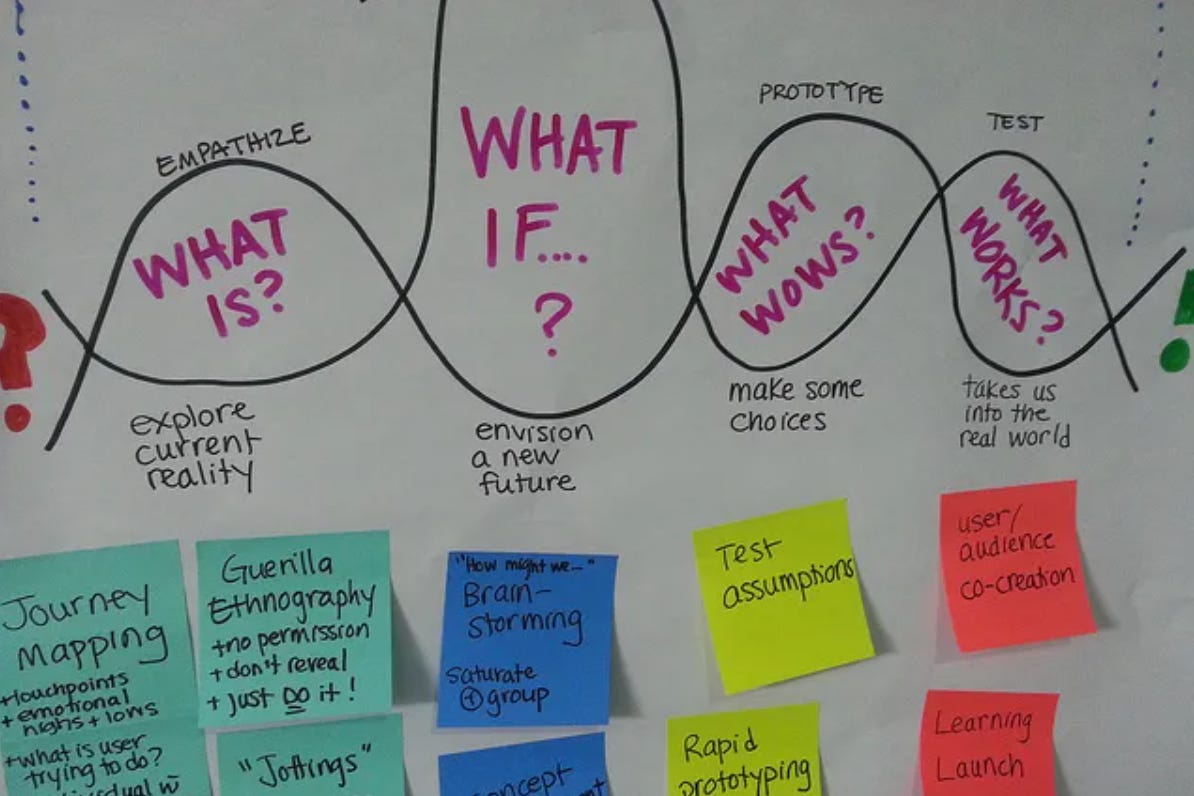 EMPATHIZE
WHAT
IS?
explore
current
reality
WHAT
IF....
?
envision
a new
future
PROTOTYPE
WHAT
WOWS?
make some
choices
TEST
WHAT
WORKS?
takes us
into the
real world
?
!
Journey
Mapping
+touchpoints
+emotional
highs + lows
+what is user
trying to do?
Guerilla
Ethnography
+no permission
+don't reveal
+ just DO it!
"Jottings"
"How might we..."
Brain-
storming
saturate
+ group
concept
Test
assumptions
Rapid
prototyping
user/
audience
co-creation
Learning
Launch